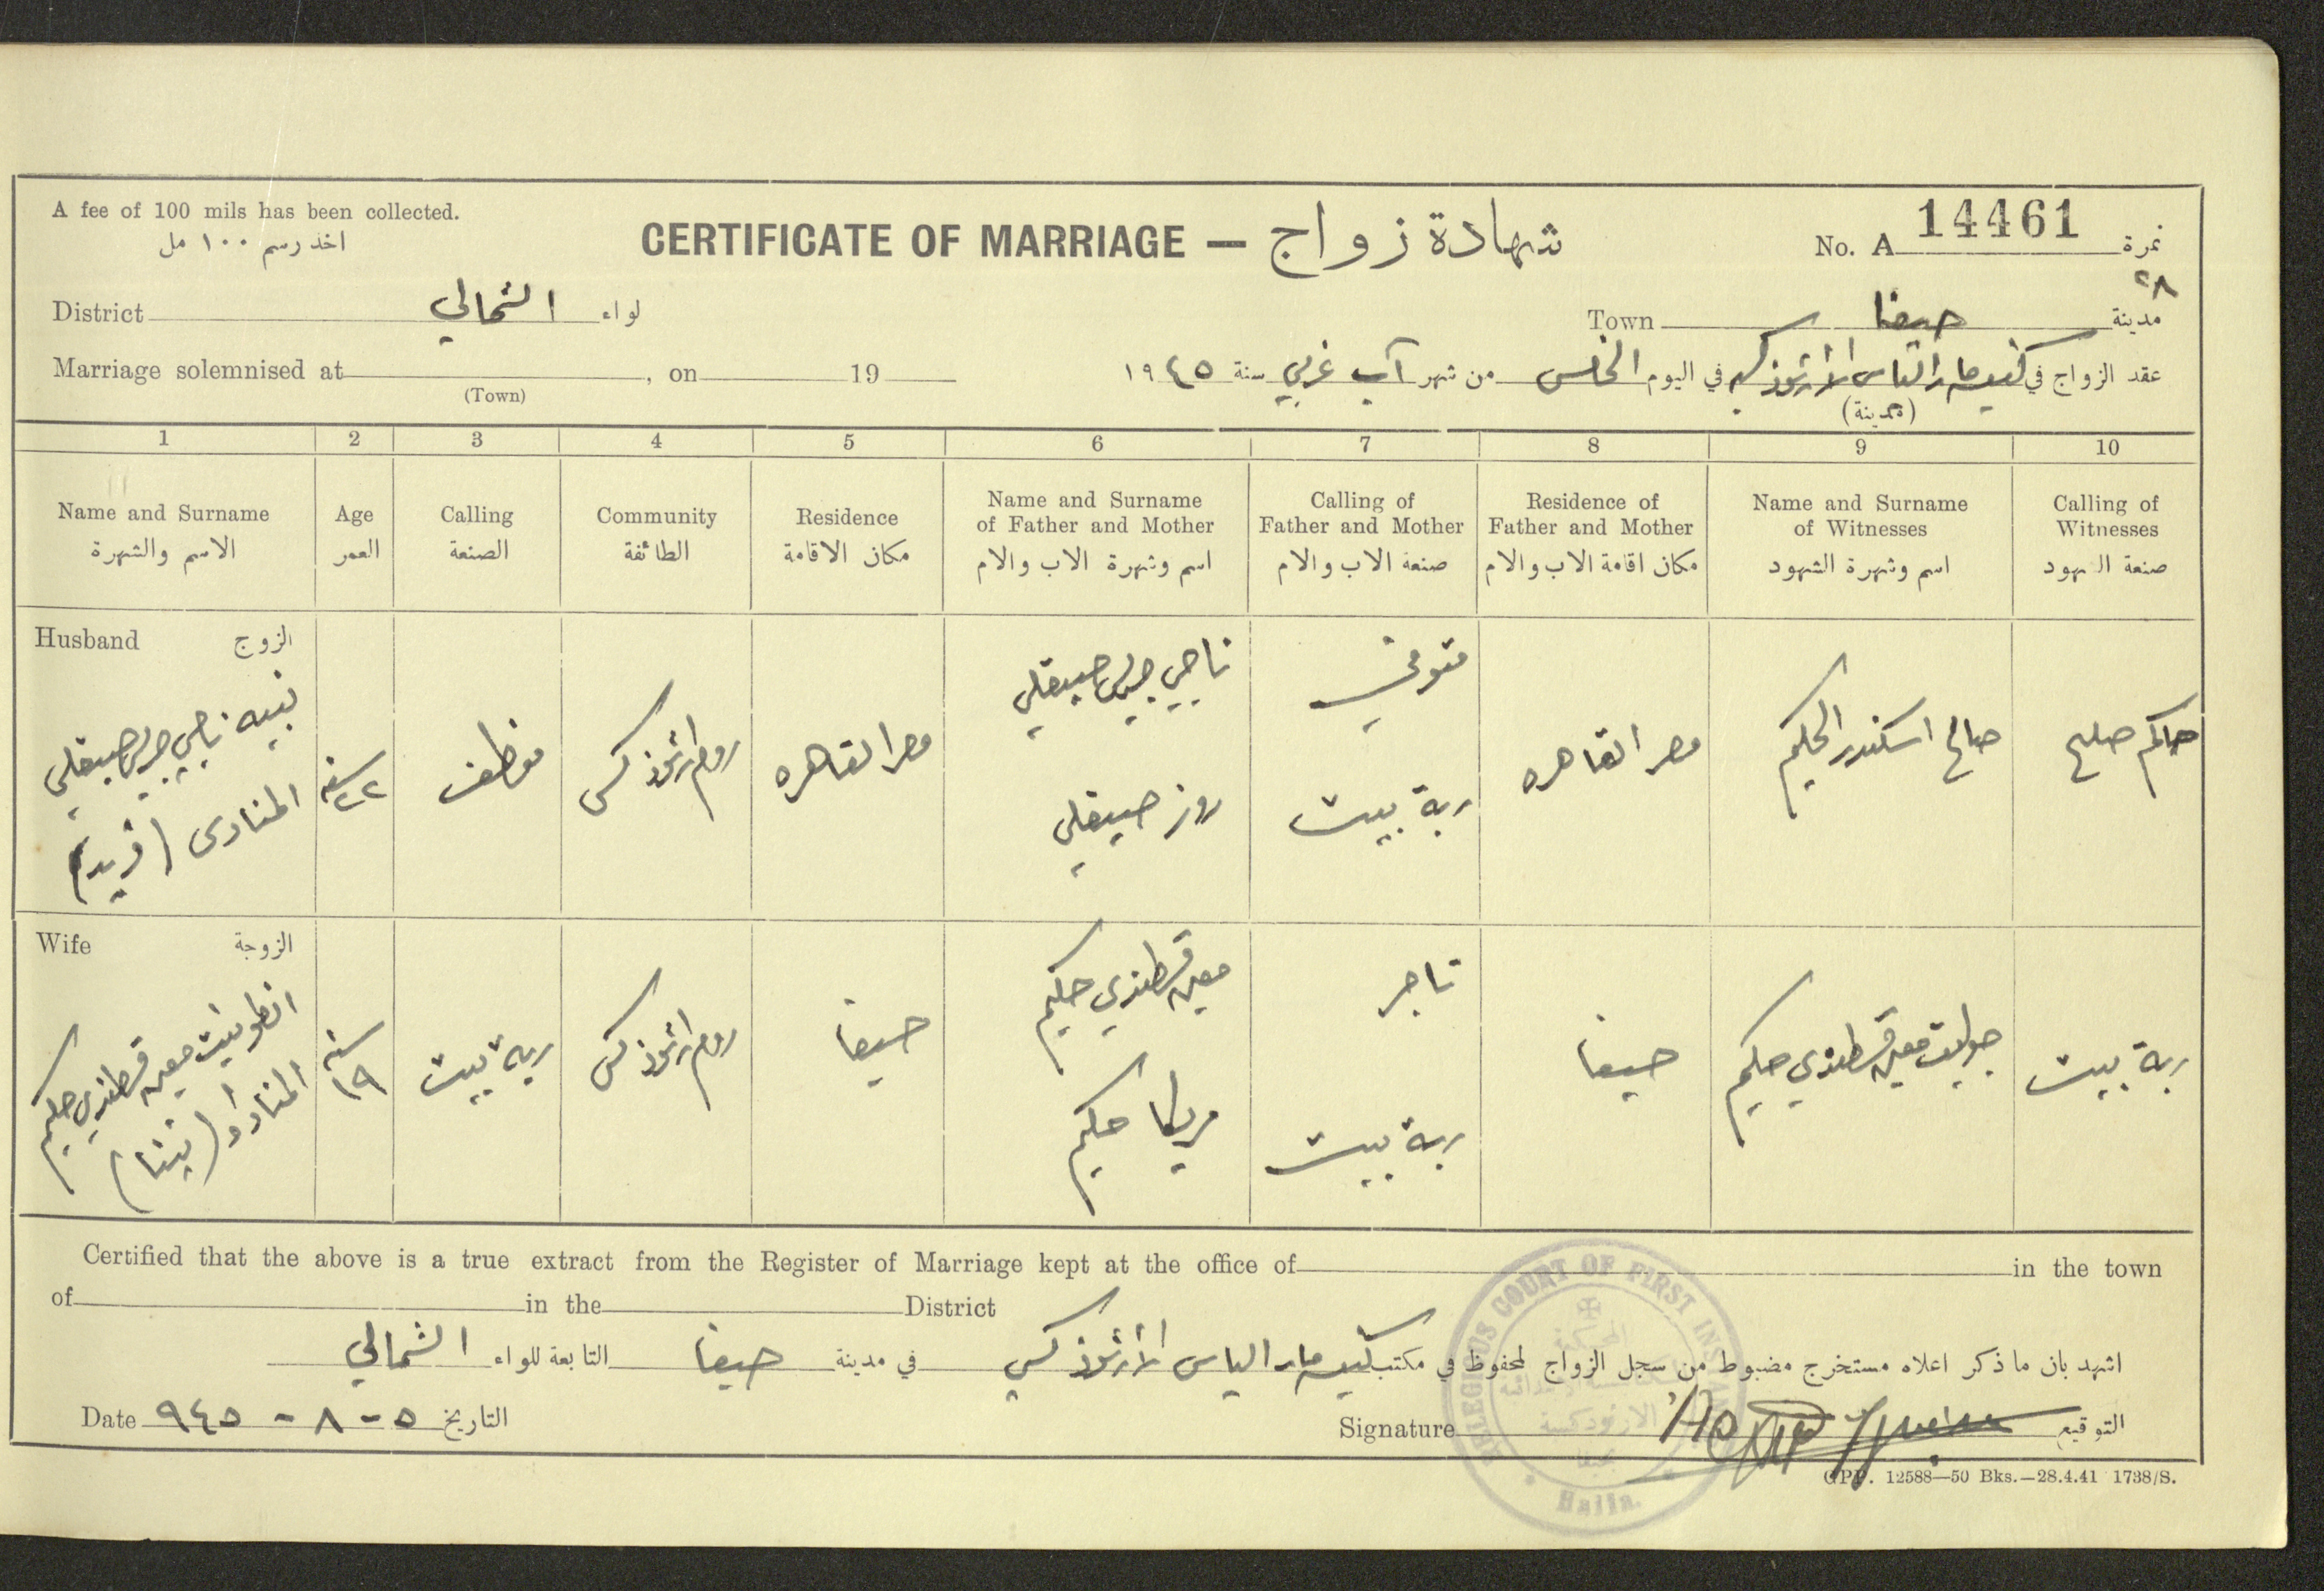 A fee of 100 mils has been collected.
اخذ رسم ١٠٠ مل
CERTIFICATE OF MARRIAGE — شهادة زواج
No. A 14461 نمرة
٢٨
District الشمالي لواء
Town حيفا مدينة
Marriage solemnised at , on 19
(Town)
عقد الزواج في كنيسة مار الياس الأرثوذكسية في اليوم الخامس من شهر آب غربي سنة ١٩٤٥
(مدينة)
1 2 3 4 5 6 7 8 9 10
Name and Surname
الاسم والشهرة
Age
العمر
Calling
الصنعة
Community
الطائفة
Residence
مكان الاقامة
Name and Surname
of Father and Mother
اسم وشهرة الاب والام
Calling of
Father and Mother
صنعة الاب والام
Residence of
Father and Mother
مكان اقامة الاب والام
Name and Surname
of Witnesses
اسم وشهرة الشهود
Calling of
Witnesses
صنعة الشهود
Husband الزوج
نبيه ناجي صيقلي
المنادى (فريد)
٢٢ سنة
موظف
روم ارثوذكس
مصر القاهره
ناجي صيقلي
روز صيقلي
متوفي
ربة بيت
مصر القاهره
صالح اسكندر الحكيم
حاكم صلح
Wife الزوجة
انطوانيت معين قسطندي حكيم
المنادأة (نينا)
١٩ سنة
ربة بيت
روم ارثوذكس
حيفا
معين قسطندي حكيم
ماريكا حكيم
تاجر
ربة بيت
حيفا
جولييت معين قسطندي حكيم
ربة بيت
Certified that the above is a true extract from the Register of Marriage kept at the office of in the town
of in the District
اشهد بان ما ذكر اعلاه مستخرج مضبوط من سجل الزواج المحفوظ في مكتب كنيسة مار الياس الأرثوذكسي في مدينة حيفا التابعة للواء الشمالي
Date ٥-٨-٩٤٥ التاريخ
Signature التوقيع
RELEGIOUS COURT OF FIRST INSTANCE
الارثوذكسية
بحيفا
Haifa.
GPP. 12588—50 Bks.—28.4.41 1738/S.